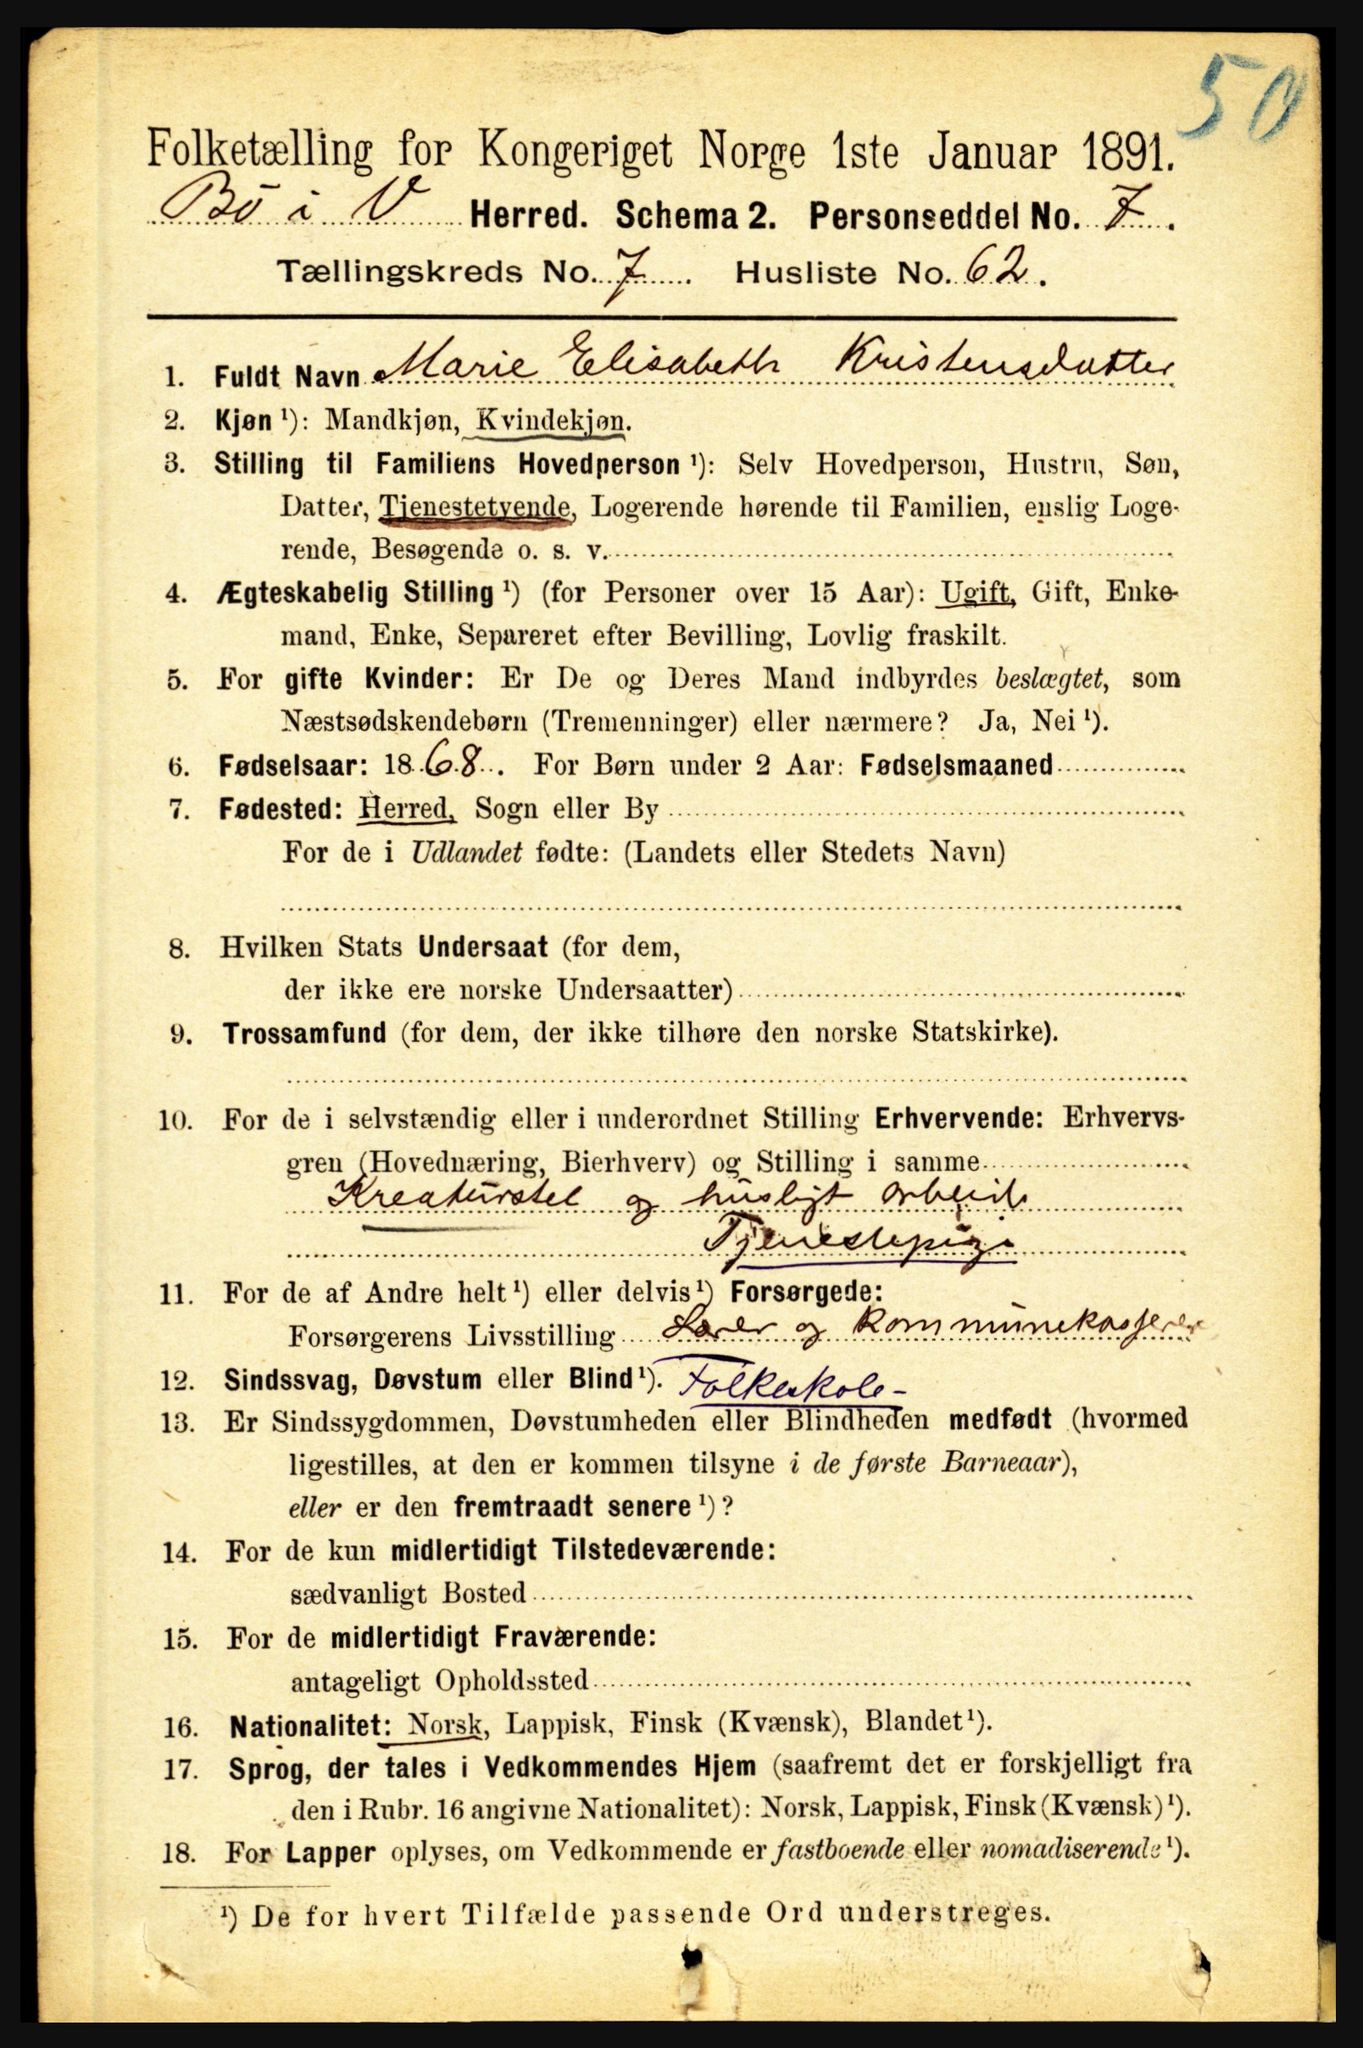 50
Folketælling for Kongeriget Norge 1ste Januar 1891.
Bö i V Herred. Schema 2. Personseddel No. 7.
Tællingskreds No. 7. Husliste No. 62.
1. Fuldt Navn Marie Elisabeth Kristensdatter
2. Kjøn ¹): Mandkjøn, Kvindekjøn.
3. Stilling til Familiens Hovedperson ¹): Selv Hovedperson, Hustru, Søn,
Datter, Tjenestetyende, Logerende hørende til Familien, enslig Loge-
rende, Besøgende o. s. v.
4. Ægteskabelig Stilling ¹) (for Personer over 15 Aar): Ugift, Gift, Enke-
mand, Enke, Separeret efter Bevilling, Lovlig fraskilt.
5. For gifte Kvinder: Er De og Deres Mand indbyrdes beslægtet, som
Næstsødskendebørn (Tremenninger) eller nærmere? Ja, Nei ¹).
6. Fødselsaar: 1868. For Børn under 2 Aar: Fødselsmaaned
7. Fødested: Herred, Sogn eller By
For de i Udlandet fødte: (Landets eller Stedets Navn)
8. Hvilken Stats Undersaat (for dem,
der ikke ere norske Undersaatter)
9. Trossamfund (for dem, der ikke tilhøre den norske Statskirke).
10. For de i selvstændig eller i underordnet Stilling Erhvervende: Erhvervs-
gren (Hovednæring, Bierhverv) og Stilling i samme
Kreaturstel og husligt arbeide
Tjenestepige
11. For de af Andre helt ¹) eller delvis ¹) Forsørgede:
Forsørgerens Livsstilling Lærer og kommunekasserer
12. Sindssvag, Døvstum eller Blind ¹). Folkeskole-
13. Er Sindssygdommen, Døvstumheden eller Blindheden medfødt (hvormed
ligestilles, at den er kommen tilsyne i de første Barneaar),
eller er den fremtraadt senere ¹)?
14. For de kun midlertidigt Tilstedeværende:
sædvanligt Bosted
15. For de midlertidigt Fraværende:
antageligt Opholdssted
16. Nationalitet: Norsk, Lappisk, Finsk (Kvænsk), Blandet ¹).
17. Sprog, der tales i Vedkommendes Hjem (saafremt det er forskjelligt fra
den i Rubr. 16 angivne Nationalitet): Norsk, Lappisk, Finsk (Kvænsk) ¹).
18. For Lapper oplyses, om Vedkommende er fastboende eller nomadiserende ¹).
¹) De for hvert Tilfælde passende Ord understreges.